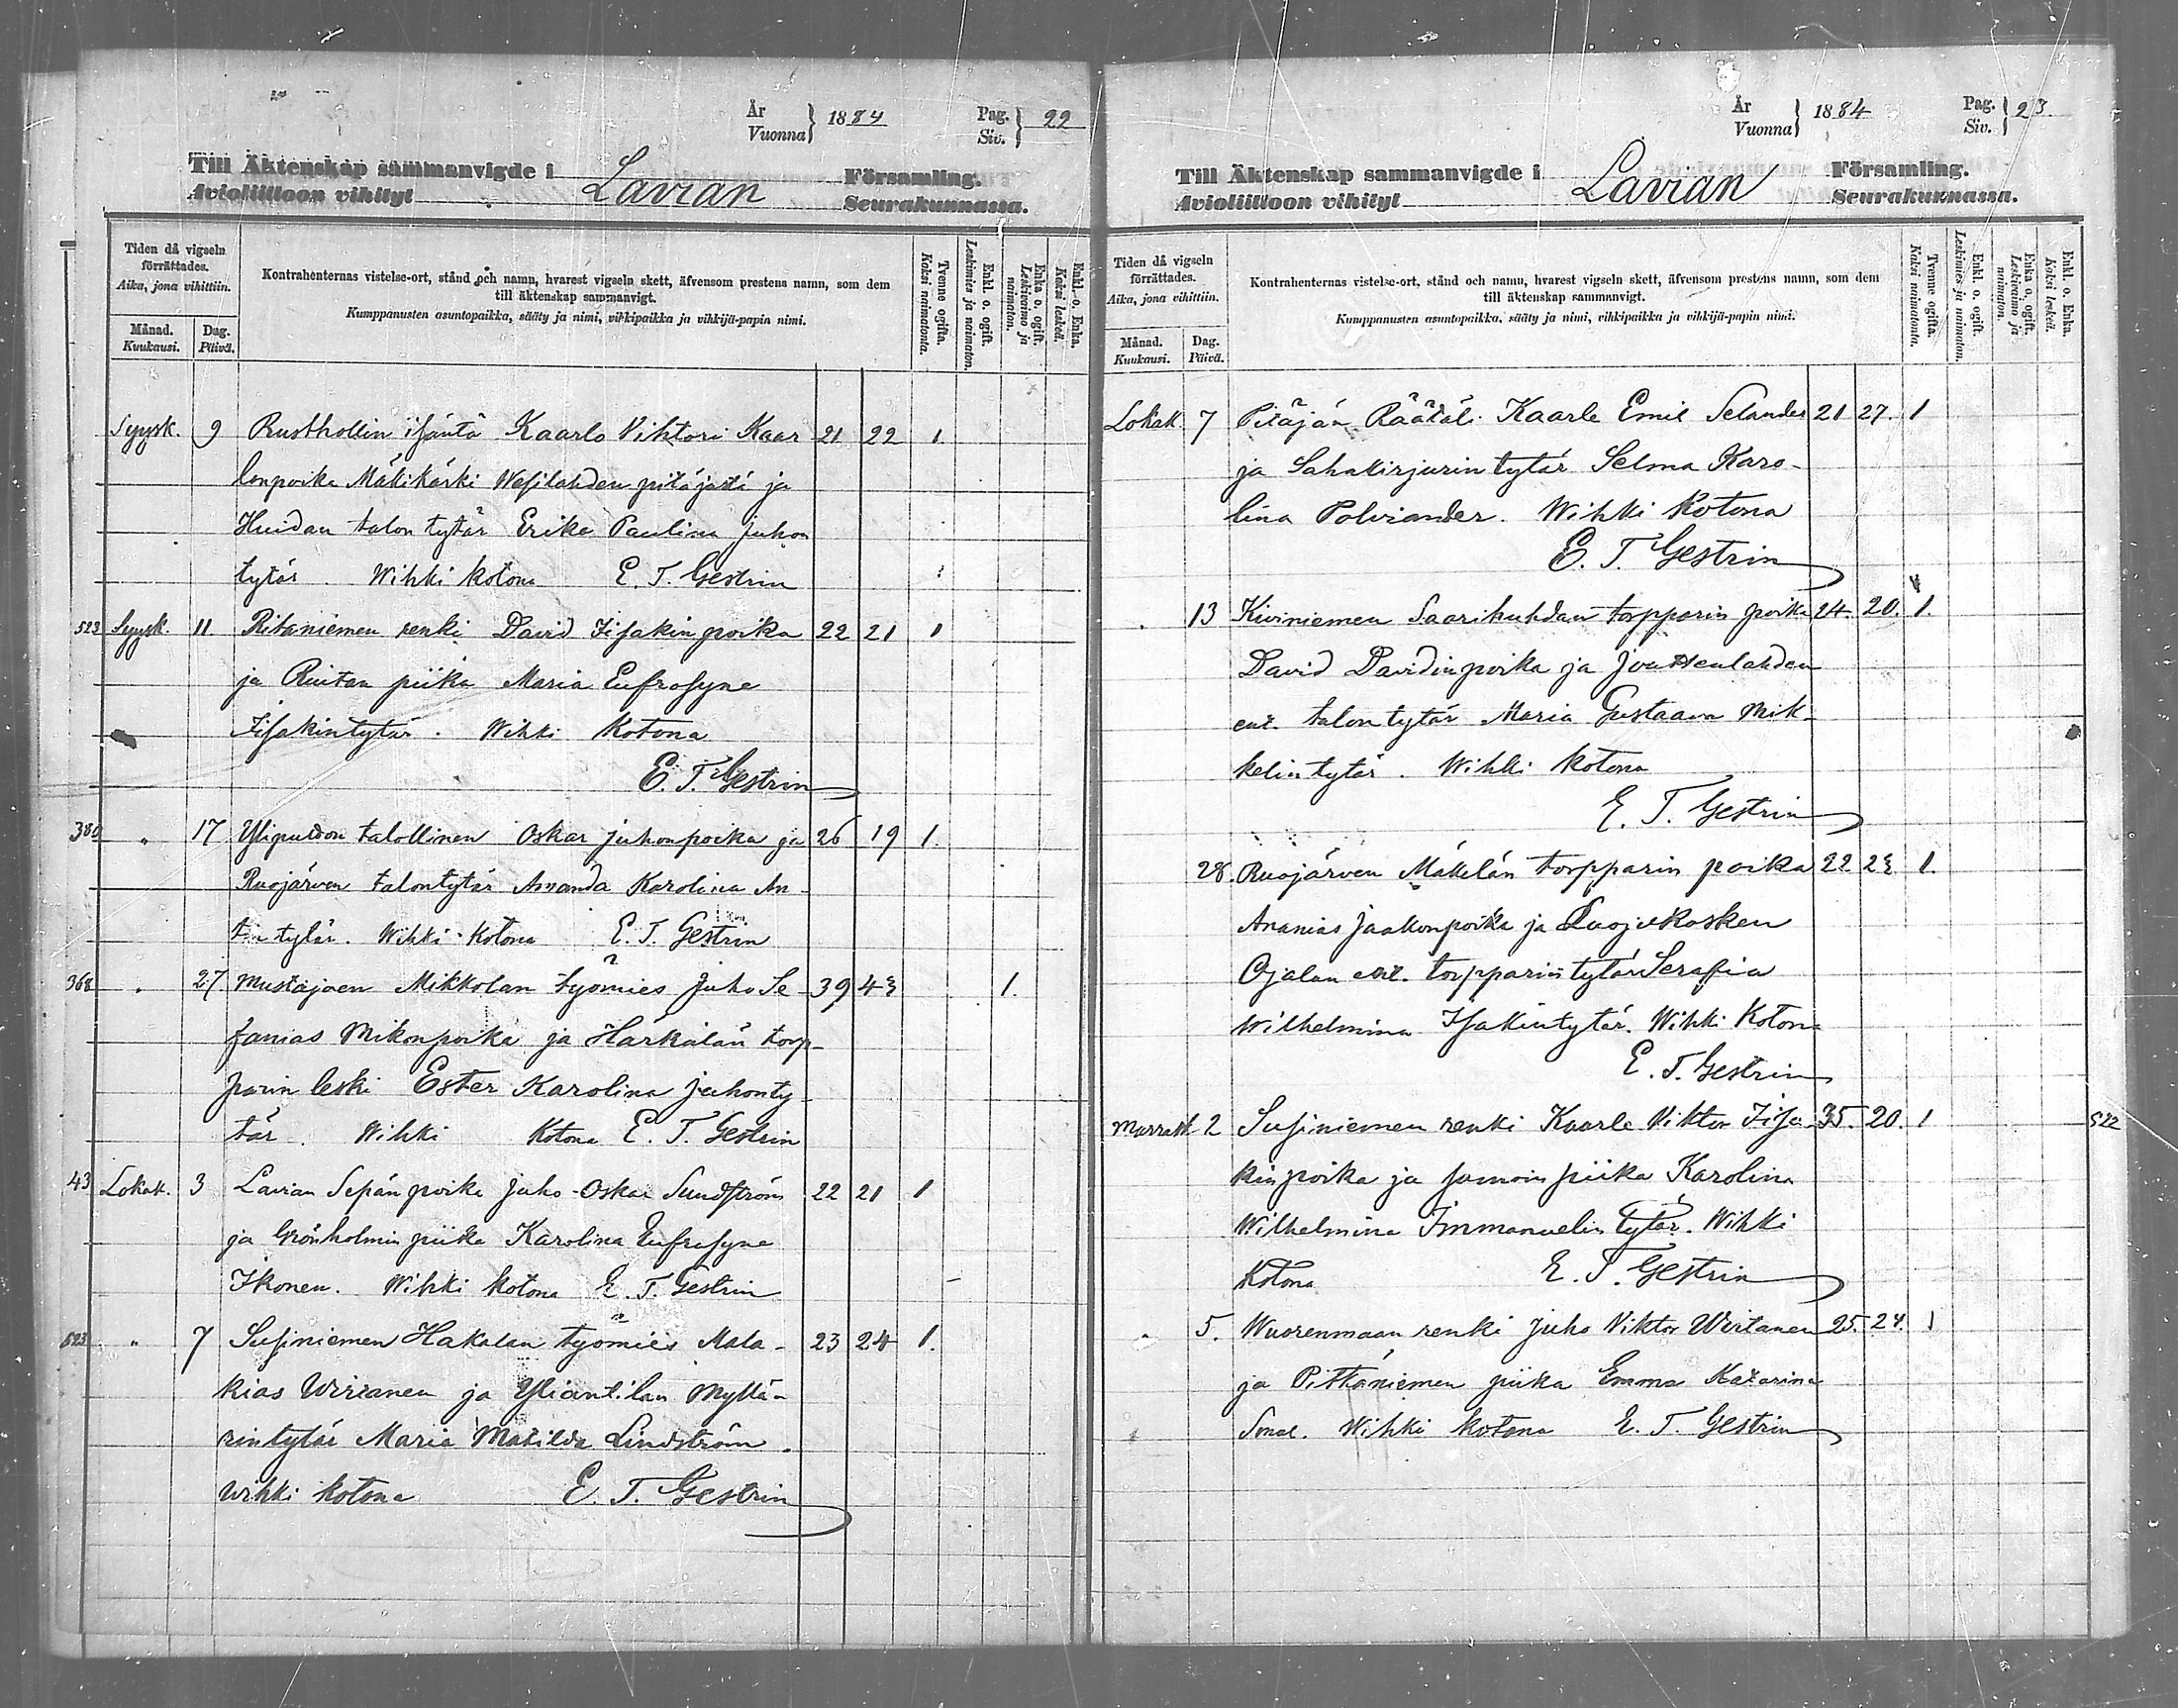 År
Vuonna } 1884
Pag.
Siv. } 22
Till Äktenskap sammanvigde i Lavian Församling.
Avioliittoon vihityt Seurakunnassa.
Tiden då vigseln förrättades.
Aika, jona vihittiin.
Månad.
Kuukausi.
Dag.
Päivä.
Kontrahenternas vistelse-ort, stånd och namn, hvarest vigseln skett, äfvensom prestens namn, som dem
till äktenskap sammanvigt.
Kumppanusten asuntopaikka, sääty ja nimi, vihkipaikka ja vihkijä-papin nimi.
Tvenne ogifta.
Kaksi naimatonta.
Enkl. o. ogift.
Leskimies ja naimaton.
Enka o. ogift.
Leskivaimo ja naimaton.
Enkl. o. Enka.
Kaksi leskeä.
Syysk. 9 Rusthollin isäntä Kaarlo Vihtori Kaar 21 22 1.
lonpoika Mäkikärki Wesilahden pitäjästä ja
Huidan talon tytär Erika Paulina Juhon
tytär. Wihki kotona E. T. Gestrin
523 Syysk. 11 Ritaniemen renki David Iisakin poika 22 21 1
ja Riutan piika Maria Eufrosyne
Iisakintytär. Wihki kotona
E. T. Gestrin
380 " 17 talollinen Oskar Juhonpoika ja 26 19 1.
Ruojärven talontytär Amanda Karolina An-
tintytär. Wihki kotona E. T. Gestrin
368 " 27 Mustajoen Mikkolan työmies Juho Se- 39 43 1.
fanias Mikonpoika ja Härkälän torp-
parin leski Ester Karolina Juhonty-
tär. Wihki kotona E. T. Gestrin
43 Lokak. 3 Lavian Sepän poika Juho Oskar Sundström 22 21 1
ja Grönholmin piika Karolina Eufrosyne
Ikonen. Wihki kotona E. T. Gestrin
523 " 7 Susiniemen Hakalan työmies Mala- 23 24 1.
kias Wirtanen ja Yliantilan Myllä-
rintytär Maria Matilda Lindström.
Wihki kotona E. T. Gestrin
År
Vuonna } 1884
Pag.
Siv. } 23.
Till Äktenskap sammanvigde i Lavian Församling.
Avioliittoon vihityt Seurakunnassa.
Tiden då vigseln förrättades.
Aika, jona vihittiin.
Månad.
Kuukausi.
Dag.
Päivä.
Kontrahenternas vistelse-ort, stånd och namn, hvarest vigseln skett, äfvensom prestens namn, som dem
till äktenskap sammanvigt.
Kumppanusten asuntopaikka, sääty ja nimi, vihkipaikka ja vihkijä-papin nimi.
Tvenne ogifta.
Kaksi naimatonta.
Enkl. o. ogift.
Leskimies ja naimaton.
Enka o. ogift.
Leskivaimo ja naimaton.
Enkl. o. Enka.
Kaksi leskeä.
Lokak. 7 Pitäjän Räätäli Kaarle Emil Selander 21 27. 1
ja Sahakirjurin tytär Selma Karo-
lina Polviander. Wihki kotona
E. T. Gestrin
" 13 Kiviniemen Saarihuhdan torpparin poika 24. 20. 1.
David Davidinpoika ja Jouttenlahden
ent. talon tytär Maria Gustaava Mik-
kelintytär. Wihki kotona
E. T. Gestrin
28. Ruojärven Mäkelän torpparin poika 22 1.
Ananias Jaakonpoika ja
Ojalan ent. torpparin tytär Serafia
Wilhelmina Isakintytär. Wihki Kotona
E. T. Gestrin
Marrask 2 Susiniemen renki Kaarle Viktor Iisa- 35. 20. 1 522
kinpoika ja samoin piika Karolina
Wilhelmina Immanuelin tytär. Wihki
Kotona E. T. Gestrin
" 5. Wuorenmaan renki Juho Viktor Wirtanen 25. 24. 1
ja Pitkäniemen piika Emma Katarina
Wihki kotona E. T. Gestrin